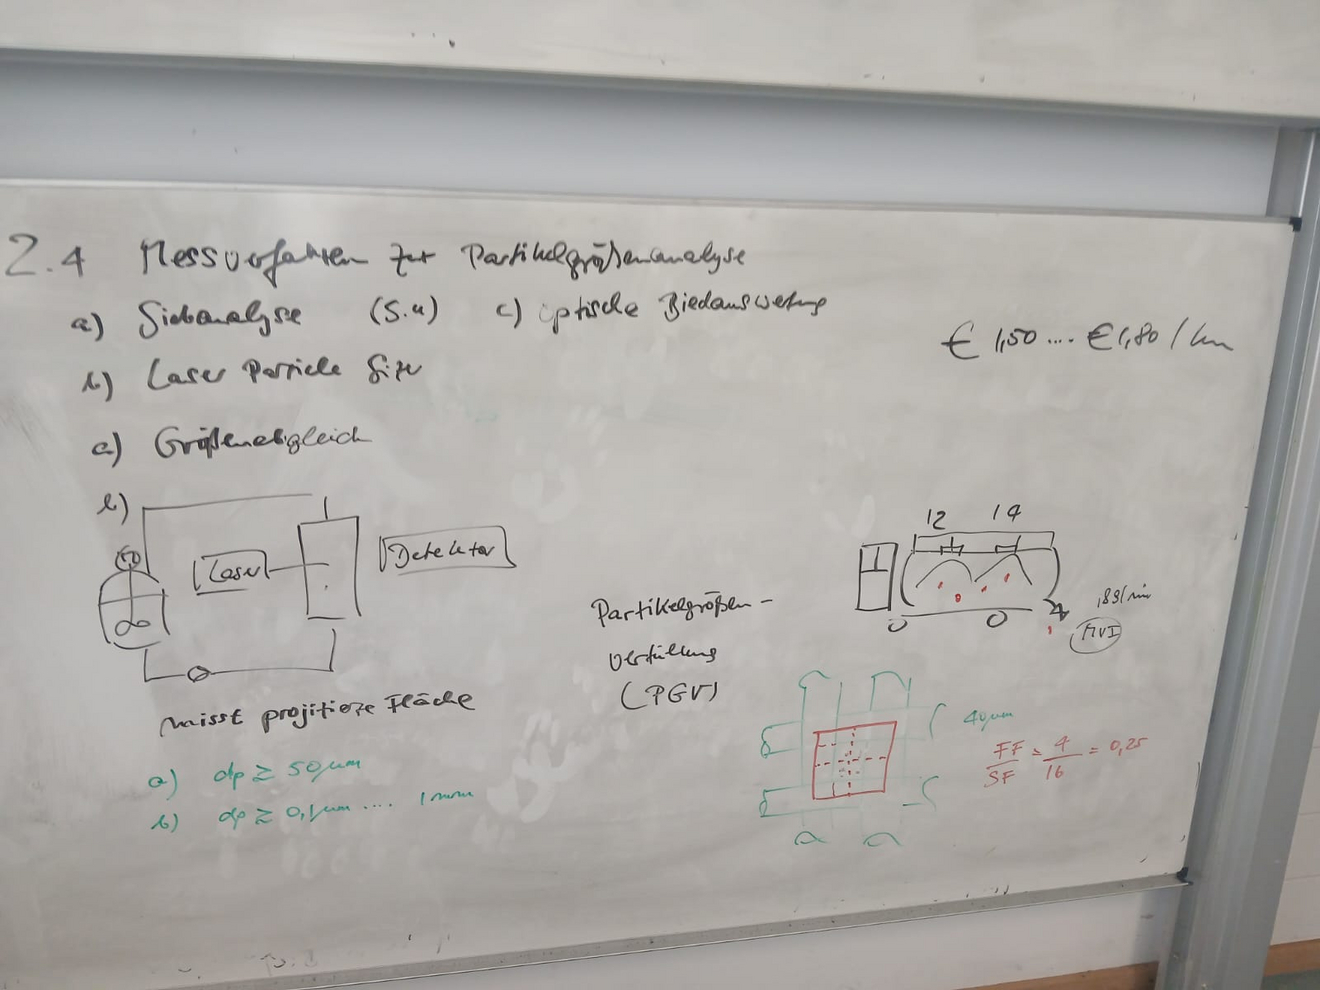 2.4 Messverfahren zur Partikelgrößenanalyse
a) Siebanalyse (s.u) c) optische Biedauswertung
b) Laser Particle Size
€ 1,50 .... € 1,80 / km
a) Größenabgleich
b)
Laser
Detektor
misst projitiere Fläche
a) dp ≥ 50µm
b) dp ≥ 0,1µm .... 1mm
Partikelgrößen-
verteilung
(PGV)
12 14
MVI
40µm
FF/SF = 4/16 = 0,25